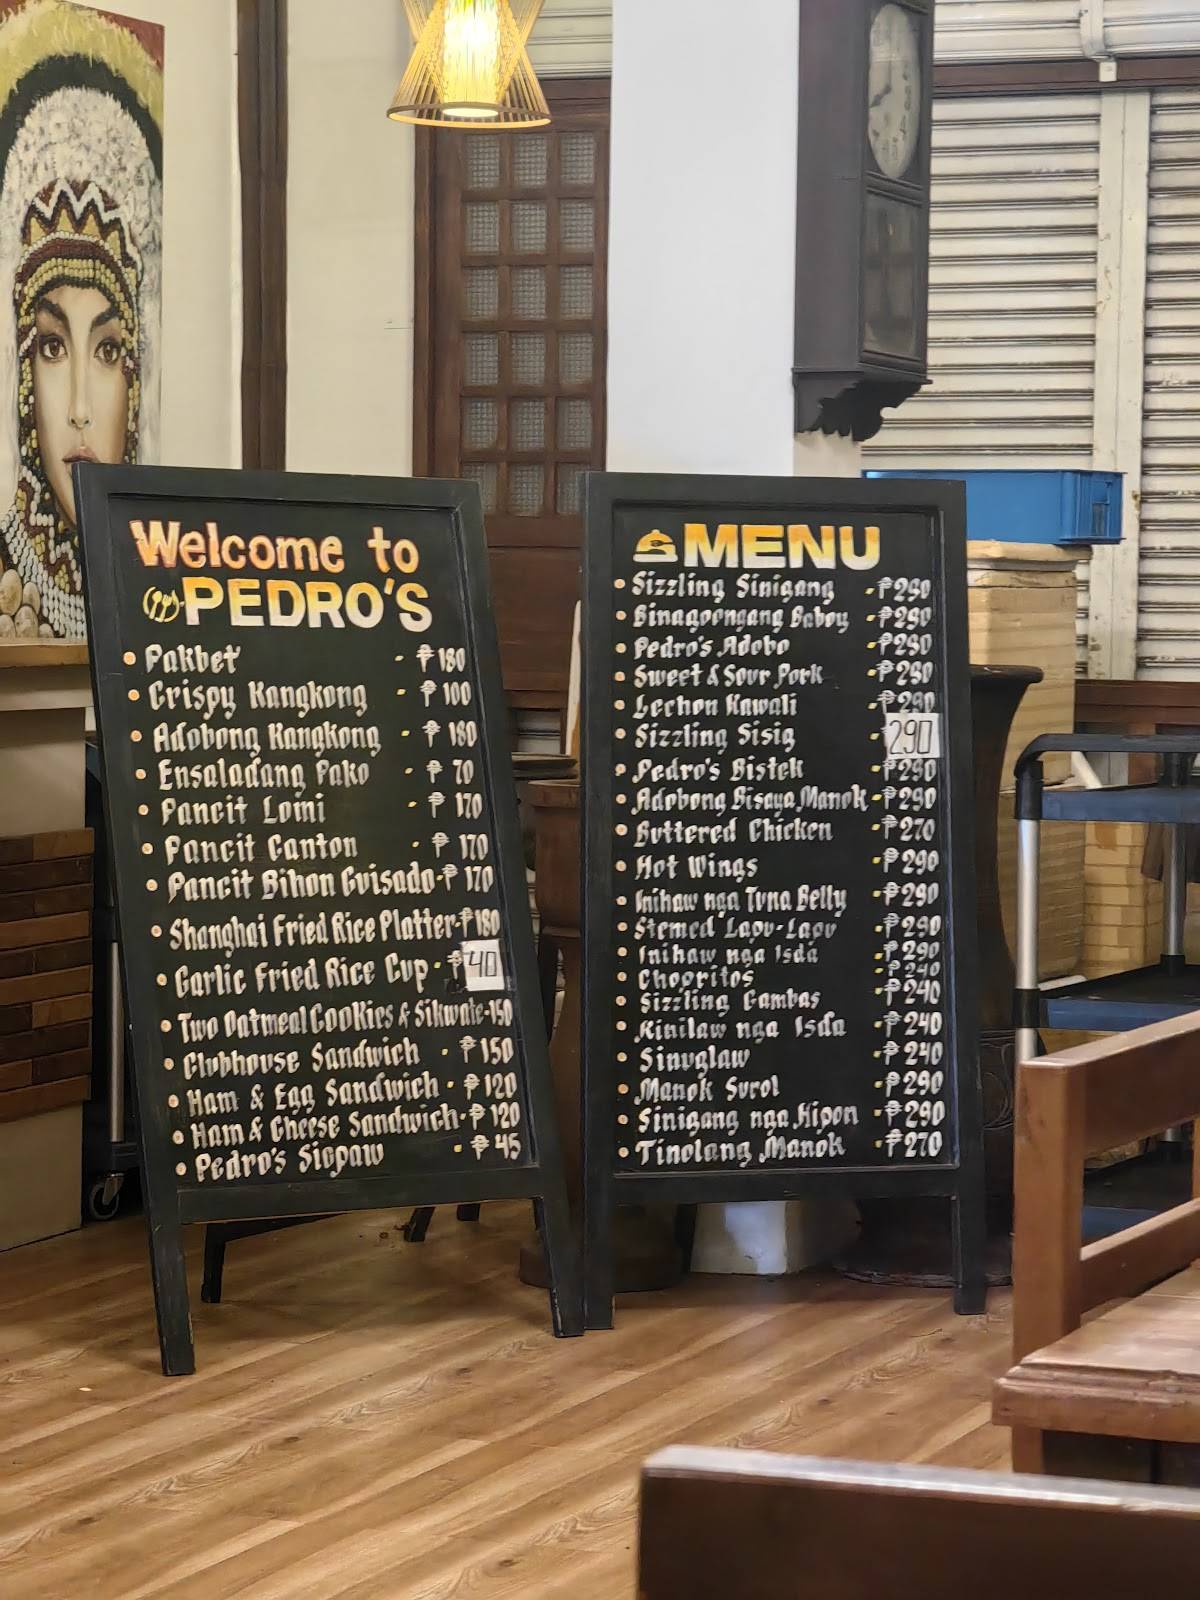 Welcome to
PEDRO'S
Pakbet - ₱180
Crispy Kangkong - ₱100
Adobong Kangkong - ₱180
Ensaladang Pako - ₱70
Pancit Lomi - ₱170
Pancit Canton - ₱170
Pancit Bihon Guisado-₱170
Shanghai Fried Rice Platter-₱180
Garlic Fried Rice Cup-₱40
Two Oatmeal Cookies & Sikwate-150
Clubhouse Sandwich - ₱150
Ham & Egg Sandwich - ₱120
Ham & Cheese Sandwich-₱120
Pedro's Siopaw - ₱45
MENU
Sizzling Sinigang -₱290
Binagoongang Baboy -₱290
Pedro's Adobo -₱290
Sweet & Sour Pork -₱290
Lechon Kawali -₱290
Sizzling Sisig - 290
Pedro's Bistek -₱290
Adobong Bisaya Manok-₱290
Buttered Chicken -₱270
Hot Wings -₱290
Inihaw nga Tuna Belly -₱290
Stemed Lapu-Lapu -₱290
Inihaw nga Isda -₱290
Chooritos -₱240
Sizzling Gambas -₱240
Kinilaw nga Isda -₱240
Sinuglaw -₱240
Manok Surol -₱290
Sinigang nga Hipon -₱290
Tinolang Manok -₱270